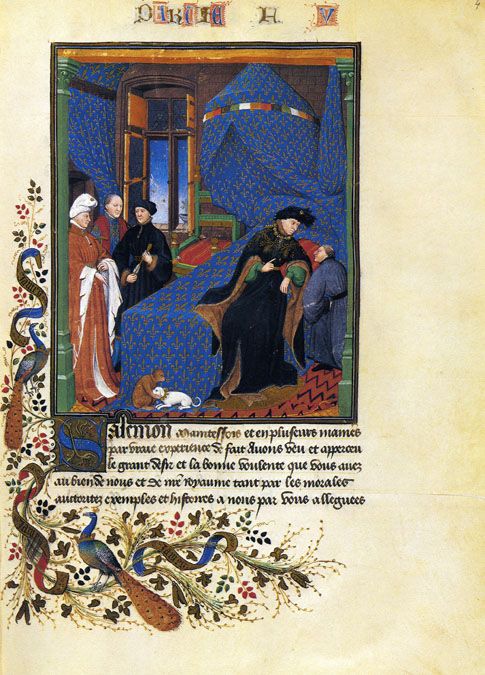 4
Salemon Maintesfois et en pluseurs
par vraye experience de fait Avons veu et apperceu
le grant desir et la bonne voulente que vous avez
au bien de nous et de nre royaume tant par les morales
auctoritez exemples et histoires a nous par vous alleguees